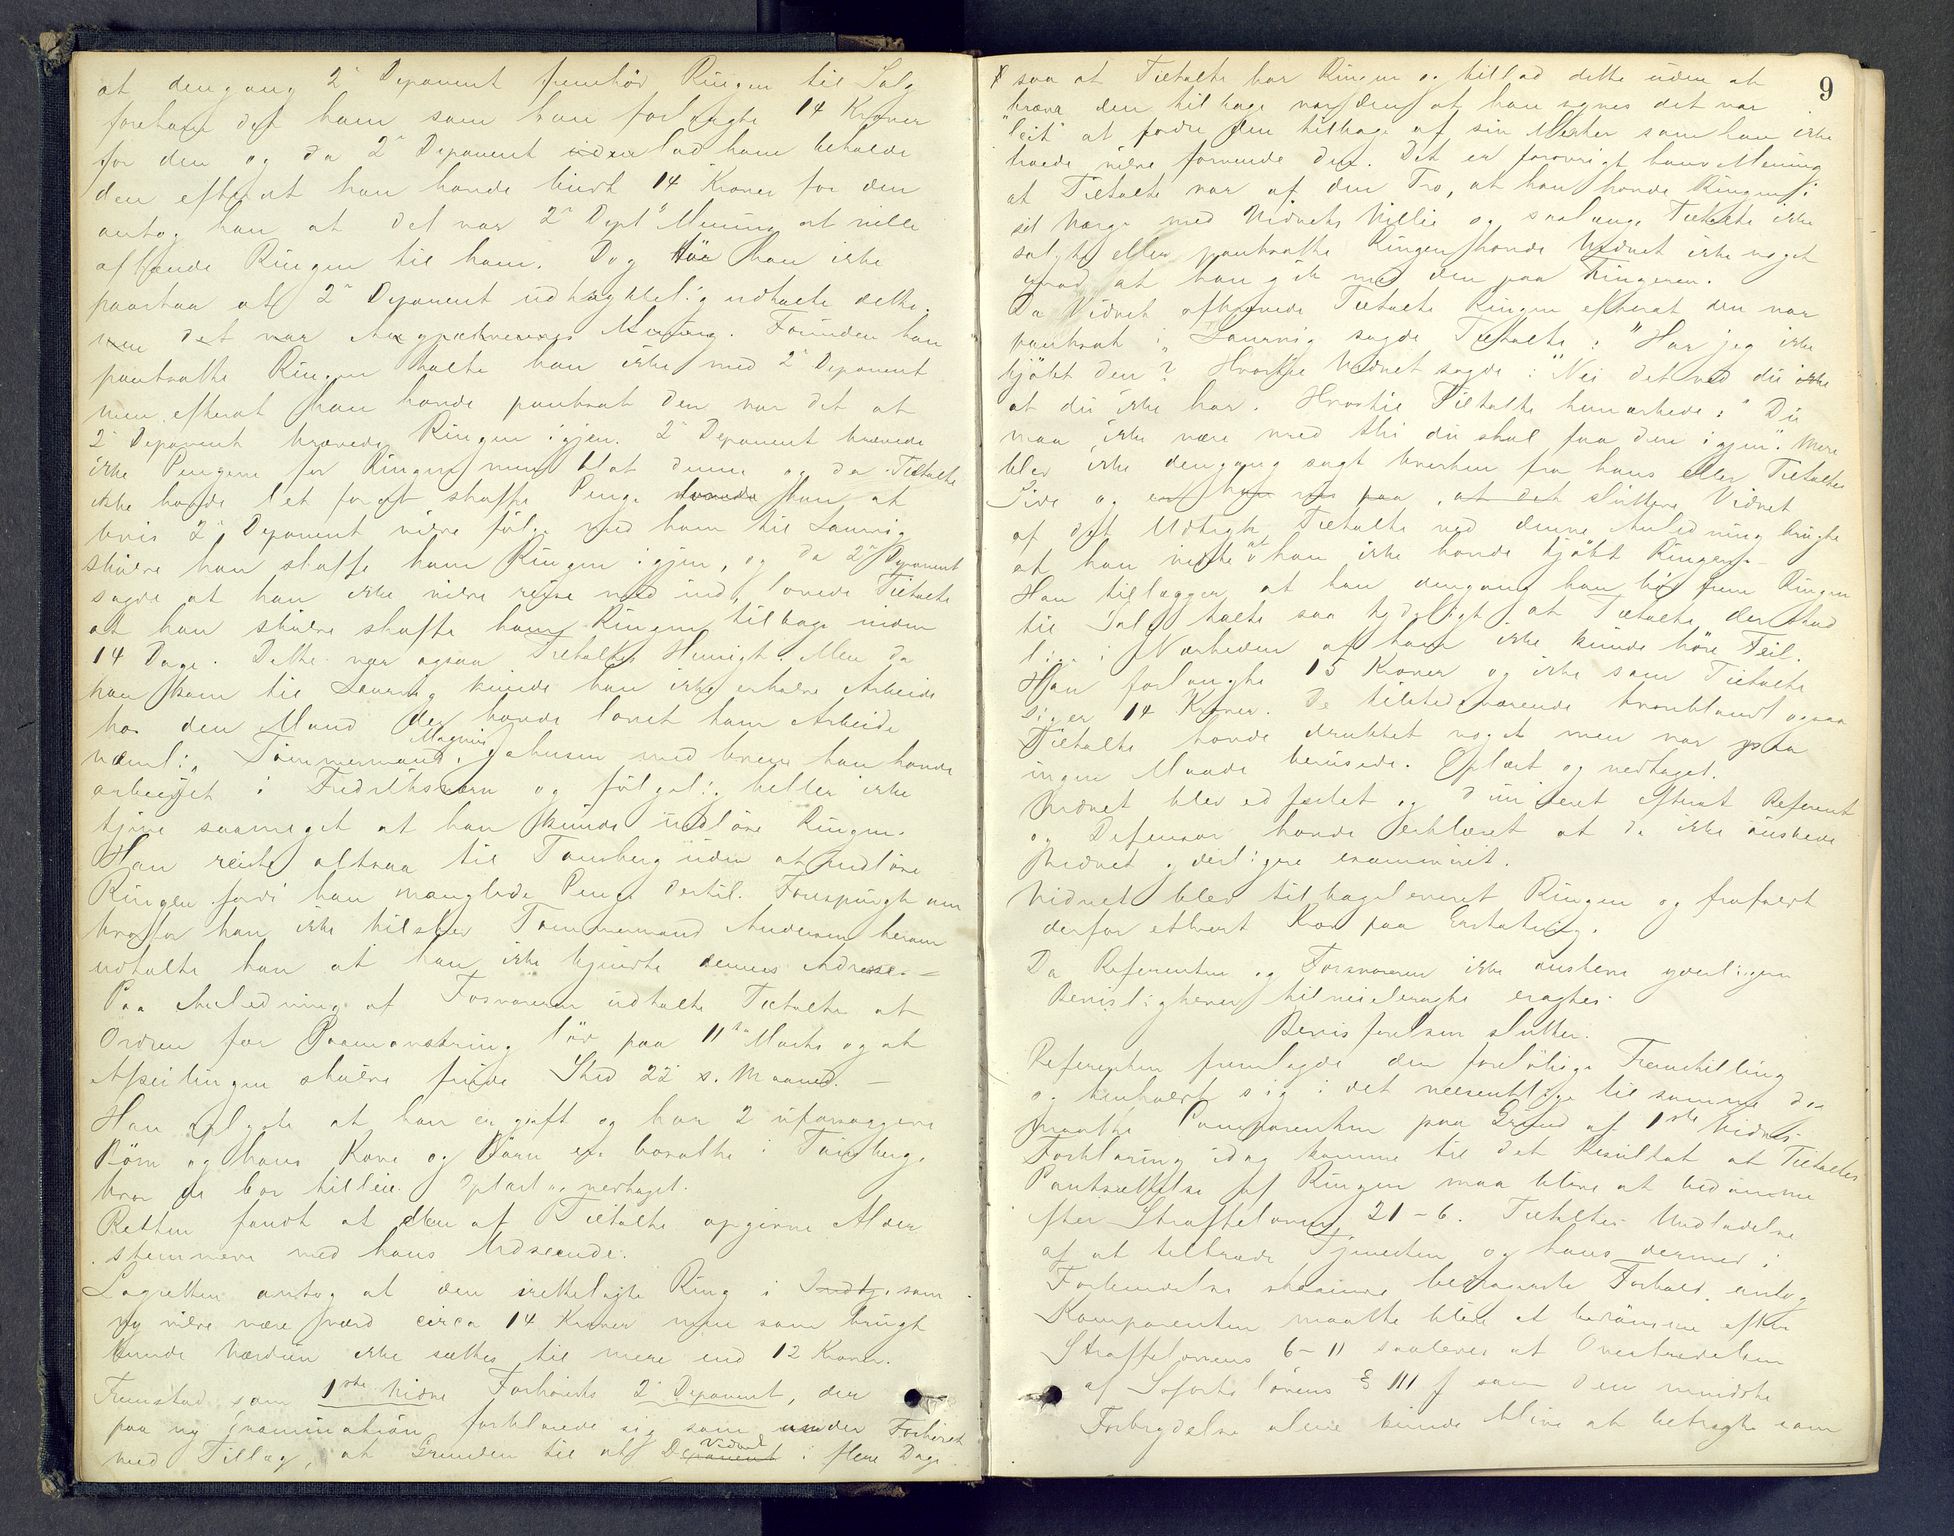 at dengang 2den Deponent frembød Ringen til Salg
forekom det ham som han forlangte 14 Kroner
for den og da 2den Deponent lod ham beholde
den efterat han havde budt 14 Kroner for den
antog han at det var 2den Dept's Mening at ville
afhænde Ringen til ham. Dog tør han ikke
paastaa at 2den Deponent udtrykkelig udtalte dette
det var Mening. Forinden han
pantsatte Ringen talte han ikke med 2den Deponent
men efterat han havde pantsat den var det at
2den Deponent krævede Ringen igjen. 2den Deponent krævede
ikke Pengene for Ringen men blot denne og da Tiltalte
ikke havde let for at skaffe Penge lovede han at
hvis 2den Deponent vilde følge med ham til Laurvig
skulde han skaffe ham Ringen igjen, og da 2den Deponent
sagde at han ikke vilde reise med ind, lovede Tiltalte
at han skulde skaffe ham Ringen tilbage inden
14 Dage. Dette var ogsaa Tiltaltes Hensigt. Men da
han kom til Laurvig kunde han ikke erholde Arbeide
hos den Mand der havde lovet ham Arbeide
nemlig Tømmermand Magnus Johnsen med hvem han havde
arbeidet i Fredriksværn og følgelig heller ikke
tjene saameget at han kunde indløse Ringen.
Han reiste altsaa til Tønsberg uden at indløse
Ringen fordi han manglede Penge dertil. Forespurgt om
hvorfor han ikke tilskrev Tømmermand Andersen herom
udtalte han at han ikke kjendte dennes Adresse. –
Paa Anledning af Forsvareren udtalte Tiltalte at
Ordren for Paamønstring lød paa 11te Marts og at
Afseilingen skulde finde Sted 22 s. Maaned. –
Han oplyste at han er gift og har 2 uforsørgede
Børn og hans Kone og Børn ere bosatte i Tønsberg
hvor de bor tilleie. Oplæst og vedtaget.
Retten fandt at den af Tiltalte opgivne Alder
stemmer med hans Udseende.
Lagretten antog at den irettelagte Ring i som
ny vilde være værd circa 14 Kroner men som brugt
kunde Værdien ikke sættes til mere end 12 Kroner.
Fremstod som 1ste Vidne Forhørets 2den Deponent, der
paa ny Examination forklarede sig som under Forhøret
med Tillæg, at Grunden til at Deponent Vidnet i flere Dage
9
saa at Tiltalte bar Ringen og tillod dette uden at
kræve den tilbage var den at han synes det var
"leit" at fordre den tilbage af sin Mester som han ikke
troede vilde forvende den. Det er forøvrigt hans Mening
at Tiltalte var af den Tro, at han havde Ringen i
sit Værge med Vidnets Villie og saalænge Tiltalte ikke
solgte eller pantsatte Ringen havde Vidnet ikke noget
imod at han gik med den paa Fingeren.
Da Vidnet afkrævede Tiltalte Ringen efterat den var
pantsat i Laurvig sagde Tiltalte: "Har jeg ikke
kjøbt den? Hvortil Vidnet sagde: "Nei det ved du
at du ikke har. Hvortil Tiltalte bemærkede: "Du
maa ikke være vred thi du skal faa den igjen". Mere
blev ikke dengang sagt hverken fra hans eller Tiltaltes
Side og slutter Vidnet
af det Udtryk Tiltalte ved denne Anledning brugte
at han vidste at han ikke havde kjøbt Ringen. –
Han tillægger at han dengang han bød frem Ringen
til Salg talte saa tydeligt at Tiltalte der stod
lige i Nærheden af ham ikke kunde høre Feil.
Han forlangte 15 Kroner og ikke som Tiltalte
siger 14 Kroner. De tilstedeværende hvoriblandt ogsaa
Tiltalte havde drukket noget men var paa
ingen Maade berusede. Oplæst og vedtaget.
Vidnet blev edfæstet og dimiteret efterat Referent
og Defensor havde erklæret at de ikke ønskede
Vidnet yderligere examineret.
Vidnet blev tilbageleveret Ringen og frafaldt
derfor ethvert Krav paa Erstatning.
Da Referenten og Forsvareren ikke ønskede yderligere
Bevisligheder tilveiebragte ergtes
Bevisførelsen sluttet.
Referenten fremlagde den foreløbige Fremstilling
og henholdt sig i det væsentlige til samme da
maatte Comparenten paa Grund af 1ste Vidnes
Forklaring idag komme til det Resultat at Tiltaltes
Pantsættelse af Ringen maa blive at bedømme
efter Straffeloven 21 – 6. Tiltaltes Undladelse
af at tiltræde Tjenesten og hans dermed i
Forbindelse staaende Forhold antog
Komparenten maatte blive at bedømme efter
Straffelovens 6 – 11 saaledes at Overtrædelsen
af Sofartslovens § 111 f som den mindste
Forbrydelse alene kunde blive at betragte som